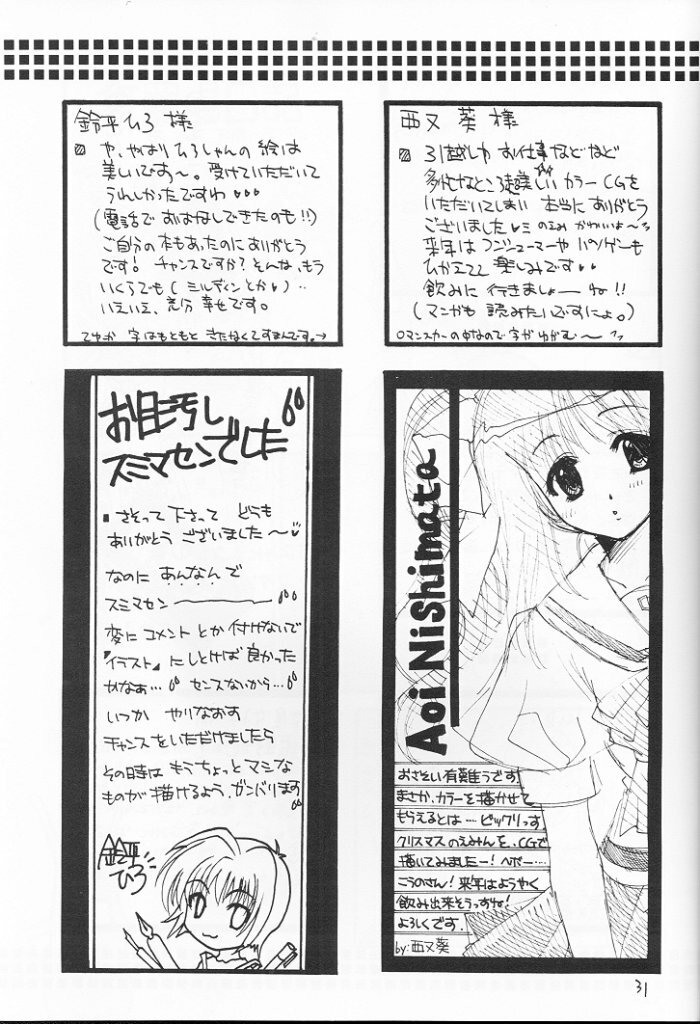 鈴平ひろ様
や、やはりひろしゃんの絵は
美しいです〜。受けていただいて
うれしかったですわ♥♥♥
(電話でおはなしできたのも!!)
ご自分の本もあったのにありがとう
です! チャンスですか?そんな、もう
いくらでも(ミルディンとか♥)…
いえいえ、充分幸せです。
てゆか 字はもともときたなくてすまんです。→
西又葵様
引越しや お仕事などなど
多忙なところ超美しい カラーCGを
いただいてしまい 本当にありがとう
ございました♥ミのえみ かわいいよ〜
来年はコンシューマーや パソゲーも
ひかえてて 楽しみです♥♥
飲みに 行きましょーね!!
(マンガも 読みたいですにょ。)
お目汚し
スミマセンでした
さそって下さって どうも
ありがとう ございました〜♥
なのに あんなんで
スミマセン――――
変に コメントとか 付けないで
『イラスト』にしとけば 良かった
かなぁ… センスないから…
いつか やりなおす
チャンスをいただけましたら
その時は もうちょっと マシな
ものが 描けるよう、ガンバリます
鈴平
ひろ
Aoi Nishimata
おさそい有難うです
まさか、カラーを描かせて
もらえるとは…ビックリっす
クリスマスのえみんを、CGで
描いてみましたー!ヘボー…
こうのさん!来年はようやく
飲み出来そうっすね!
よろしくです。
by:西又葵
31